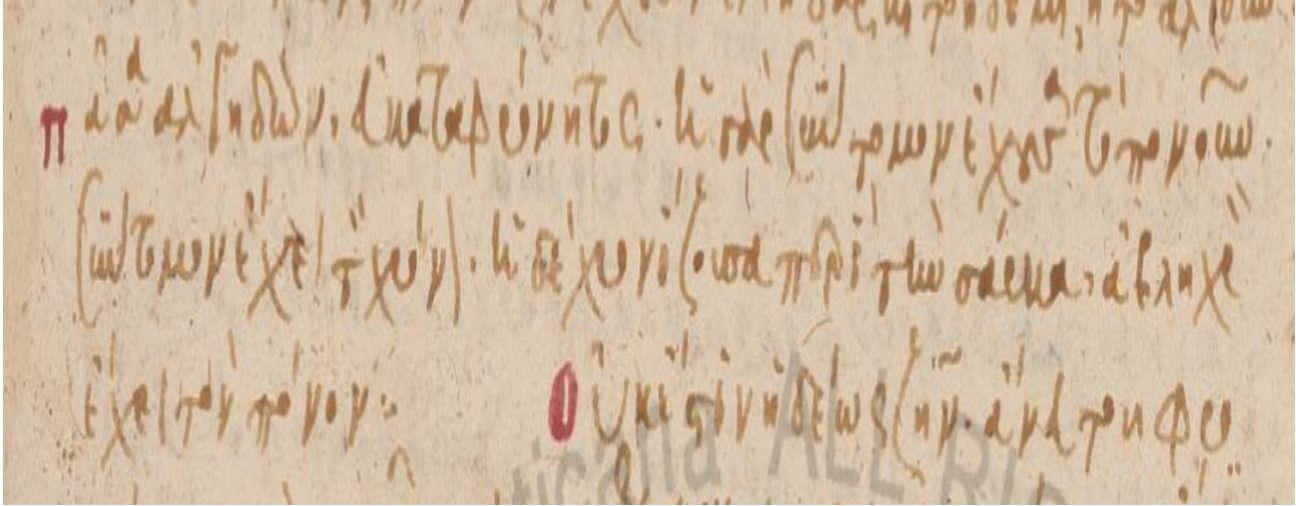 Πᾶσα ἀλγηδὼν, εὐκαταφρόνητος· ἡ γὰρ σύντομον ἔχουσα τὸ πονοῦν·
σύντομον ἔχει τὸν χρόνον· ἡ δὲ χρονίζουσα περὶ τὴν σάρκα, ἀβληχρὸν
ἔχει τὸν πόνον: Οὐκ ἔστιν ἡδέως ζῆν ἄνευ τοῦ φρο